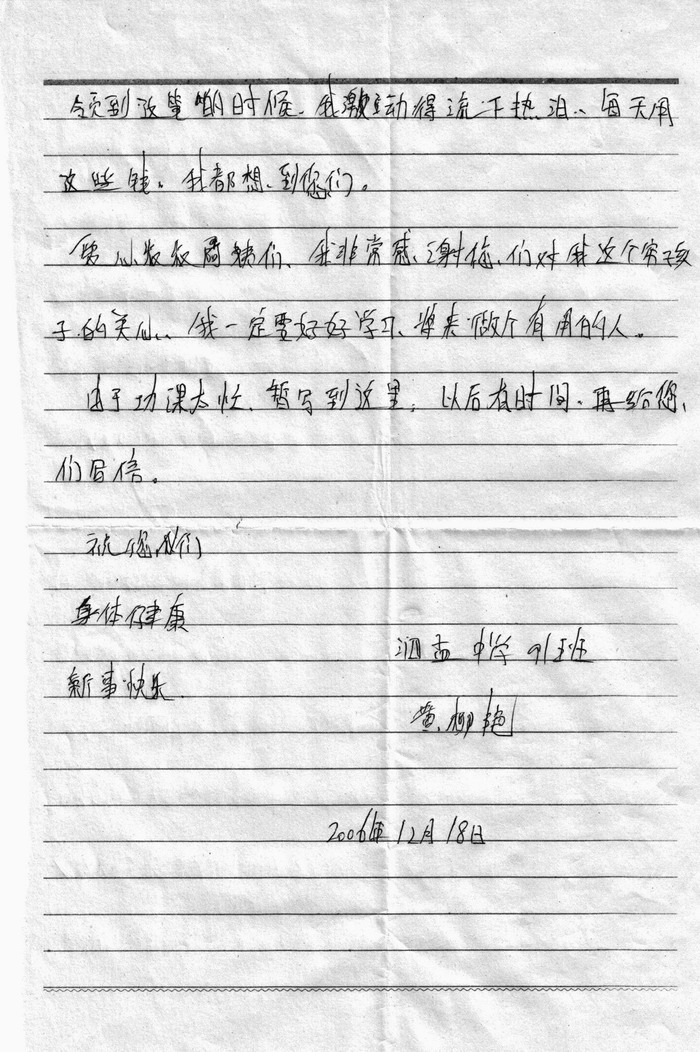 领到这笔钱的时候、我激动得流下热泪、每天用
这些钱。我都想到您们。
爱心叔叔阿姨们、我非常感谢您们对我这个穷孩
子的关心、我一定要好好学习、将来做个有用的人。
由于功课太忙、暂写到这里；以后有时间、再给您
们写信。
祝您们
身体健康
新事快乐.
泗孟中学 91班
黄柳艳
2006年12月18日